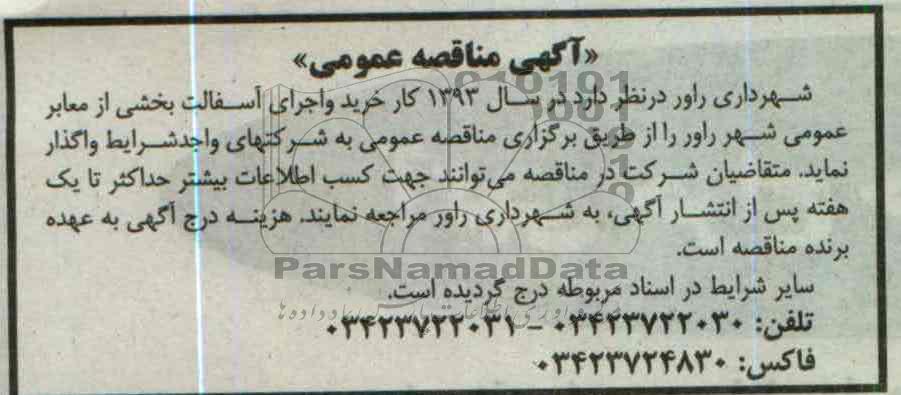 «آگهی مناقصه عمومی»
شهرداری راور درنظر دارد در سال ۱۳۹۳ کار خرید واجرای آسفالت بخشی از معابر
عمومی شهر راور را از طریق برگزاری مناقصه عمومی به شرکتهای واجدشرایط واگذار
نماید. متقاضیان شرکت در مناقصه می‌توانند جهت کسب اطلاعات بیشتر حداکثر تا یک
هفته پس از انتشار آگهی، به شهرداری راور مراجعه نمایند. هزینه درج آگهی به عهده
برنده مناقصه است.
ParsNamadData
سایر شرایط در اسناد مربوطه درج گردیده است.
تلفن: ۰۳۴۲۳۷۲۲۰۳۰ – ۰۳۴۲۳۷۲۲۰۳۱
فاکس: ۰۳۴۲۳۷۲۴۸۳۰